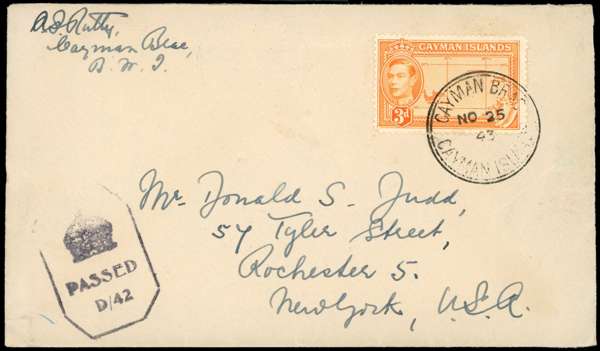 A S Rutty,
Cayman Brac,
B. W. I.
CAYMAN ISLANDS
3d
CAYMAN BRAC
NO 25
43
CAYMAN ISLANDS
Mr. Donald S. Judd,
57 Tyler Street,
Rochester 5.
New York, U.S.A.
PASSED
D/42